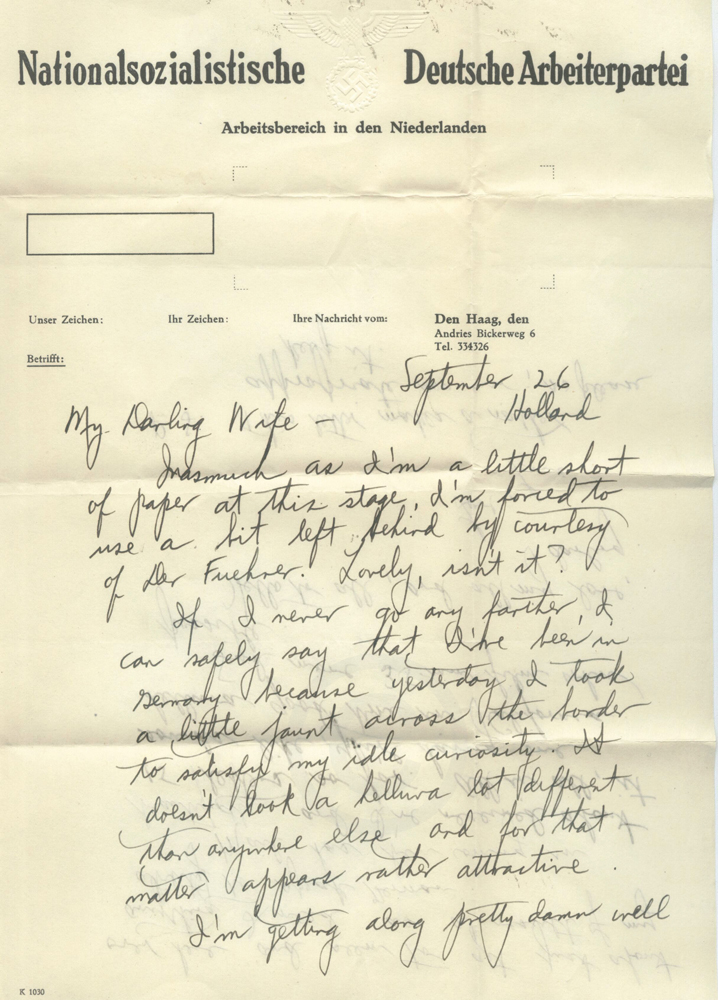 Nationalsozialistische Deutsche Arbeiterpartei
Arbeitsbereich in den Niederlanden
Unser Zeichen: Ihr Zeichen: Ihre Nachricht vom: Den Haag, den
Andries Bickerweg 6
Tel. 334326
Betrifft:
September 26
Holland
My Darling Wife –
Inasmuch as I'm a little short
of paper at this stage, I'm forced to
use a bit left behind by courtesy
of Der Fuehrer. Lovely, isn't it?
If I never go any farther, I
can safely say that I've been in
Germany because yesterday I took
a little jaunt across the border
to satisfy my idle curiosity. It
doesn't look a helluva lot different
than anywhere else and for that
matter appears rather attractive.
I'm getting along pretty damn well
K 1030